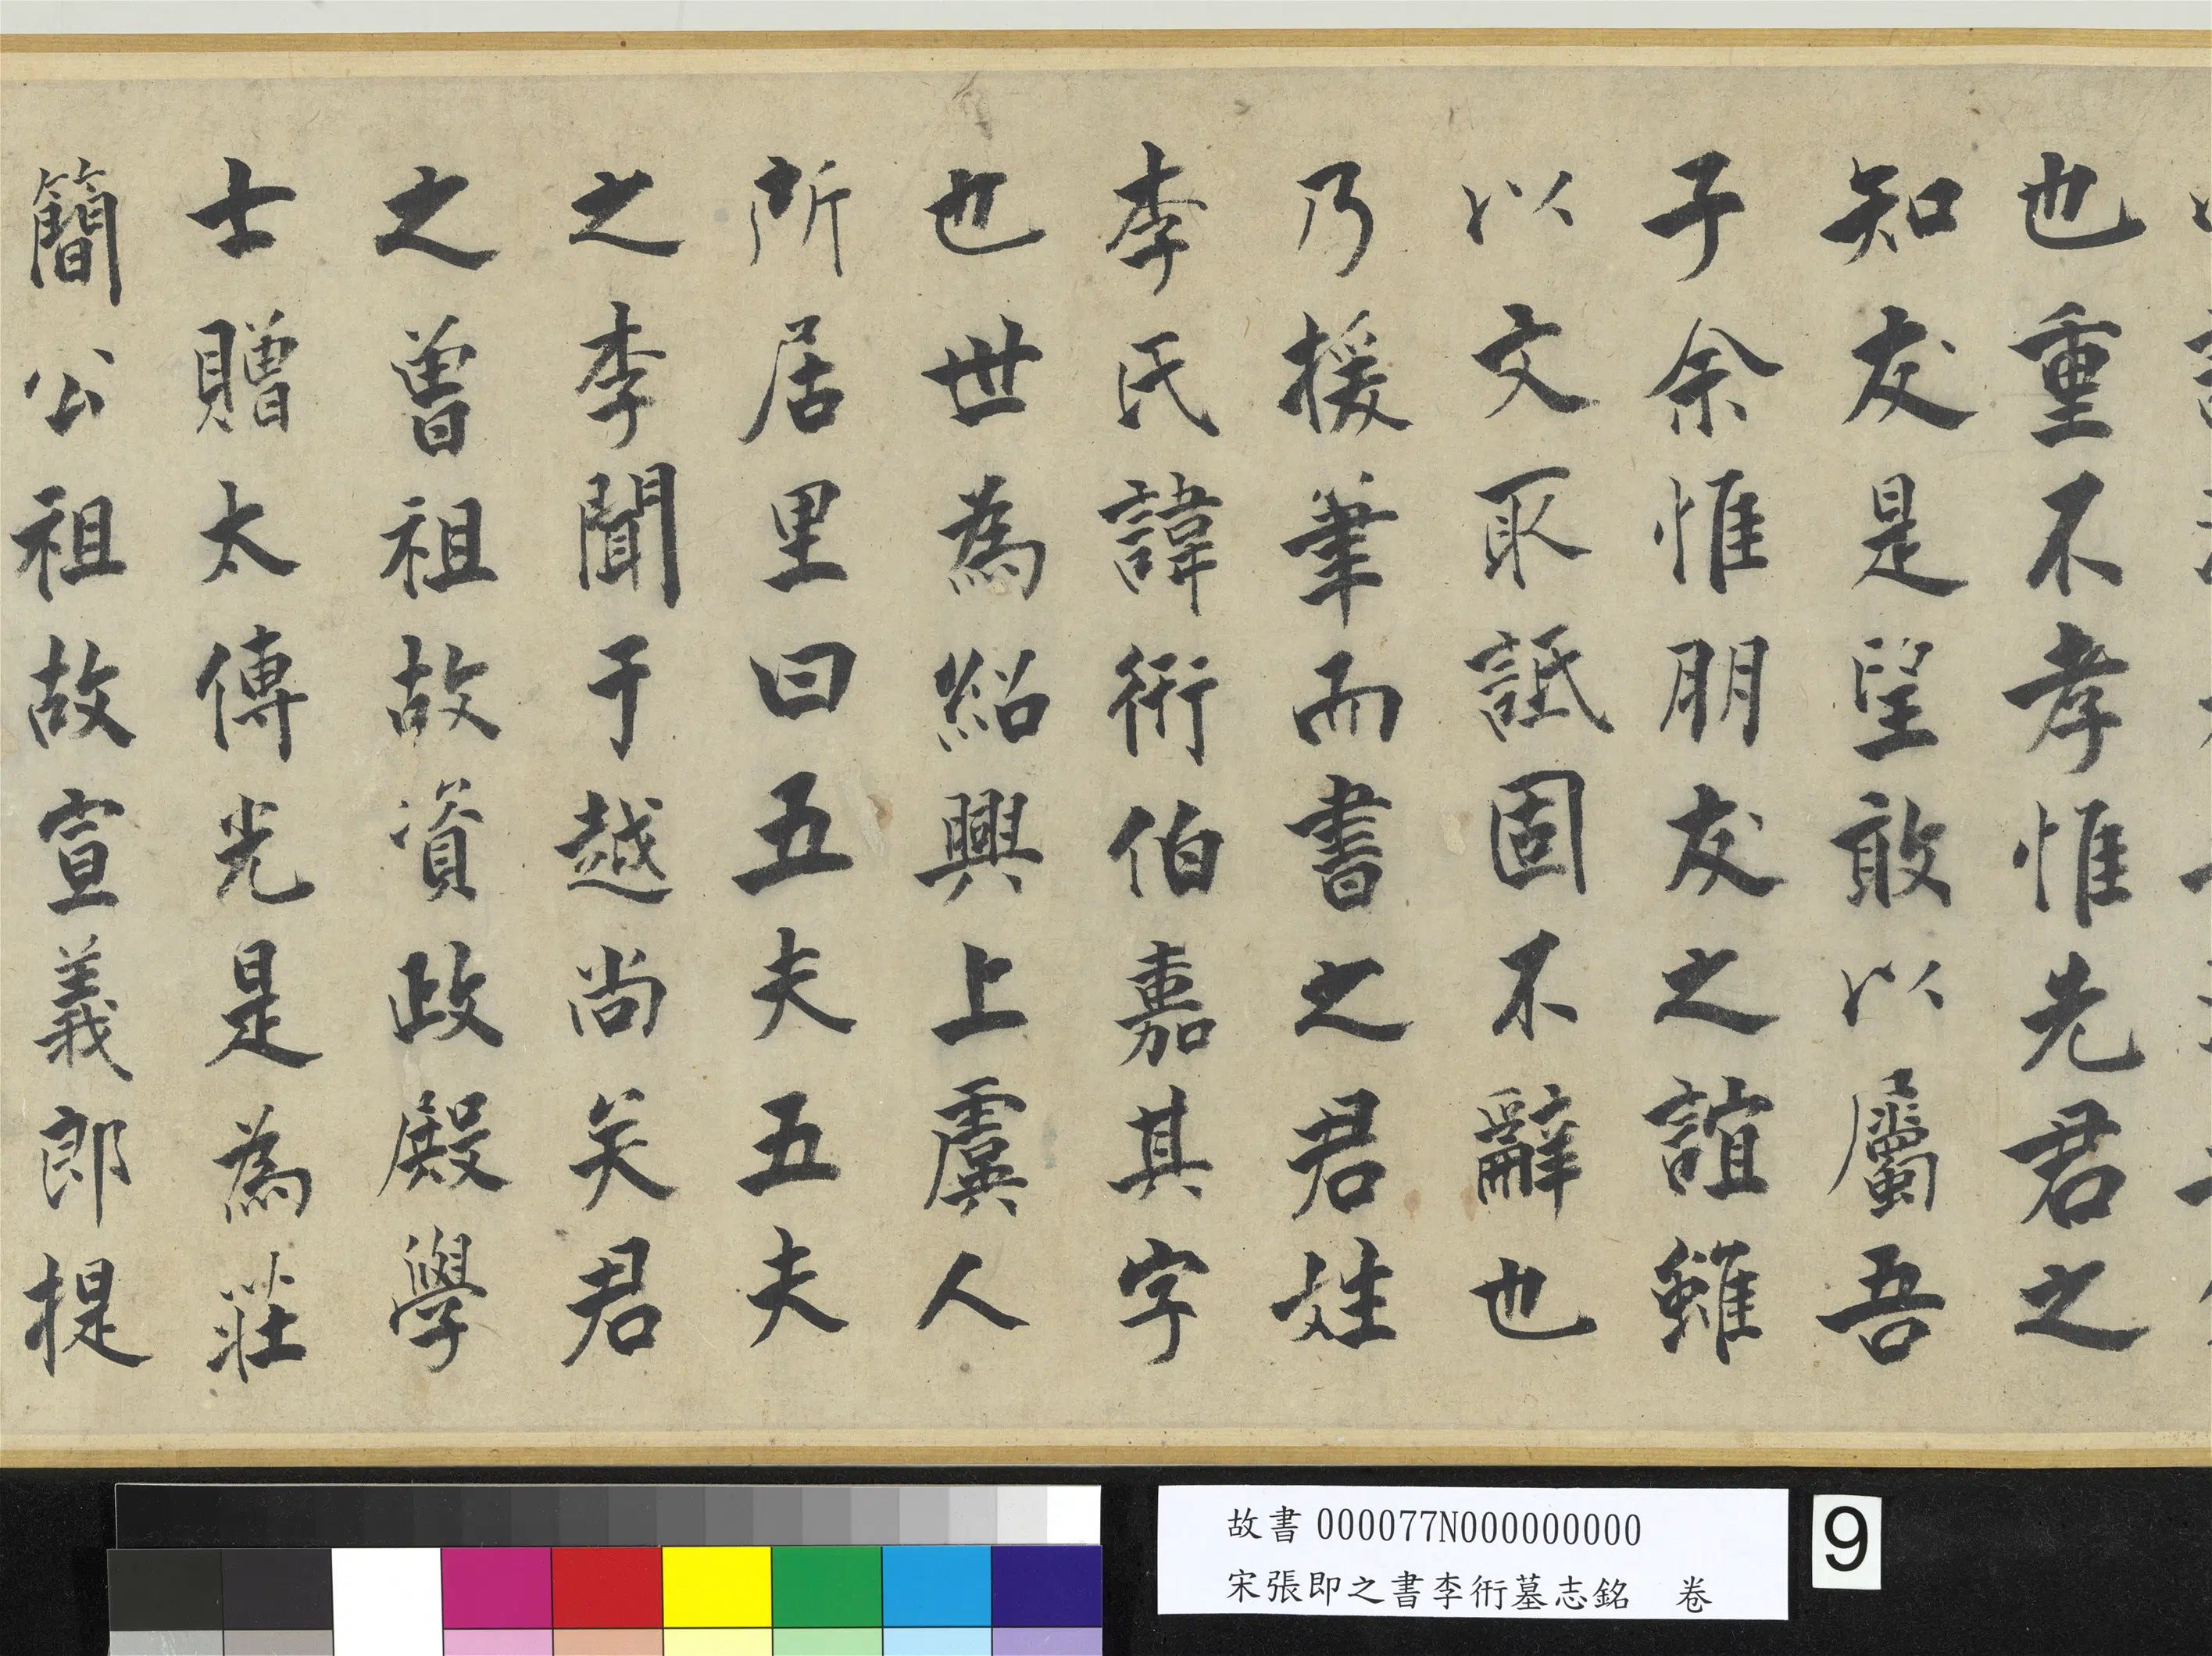 也重不孝惟先君之
知友是望敢以屬吾
子余惟朋友之誼雖
以文取詆固不辭也
乃援筆而書之君姓
李氏諱衎伯嘉其字
也世為紹興上虞人
所居里曰五夫五夫
之李聞于越尚矣君
之曾祖故資政殿學
士贈太傅光是為莊
簡公祖故宣義郎提
故書 000077N000000000
宋張即之書李衎墓志銘 卷
9